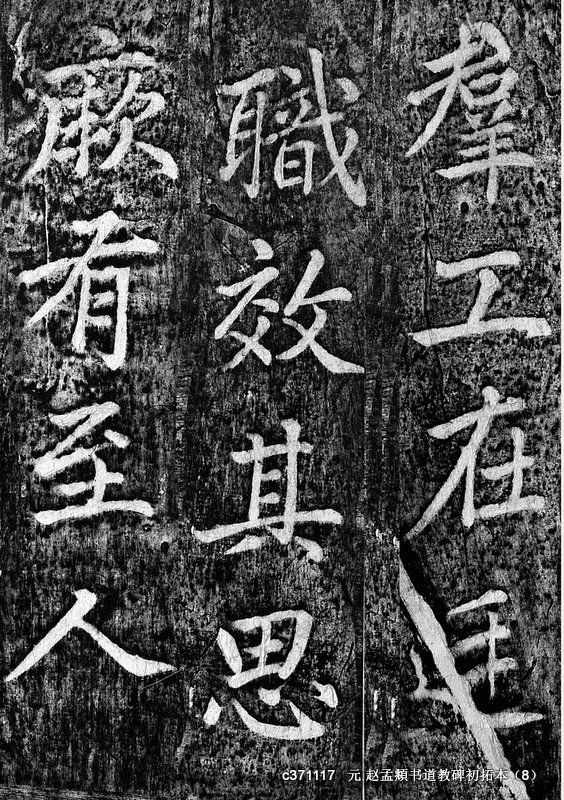 羣工在廷
職效其思
厥有至人
c371117 元 赵孟頫书道教碑初拓本（8）